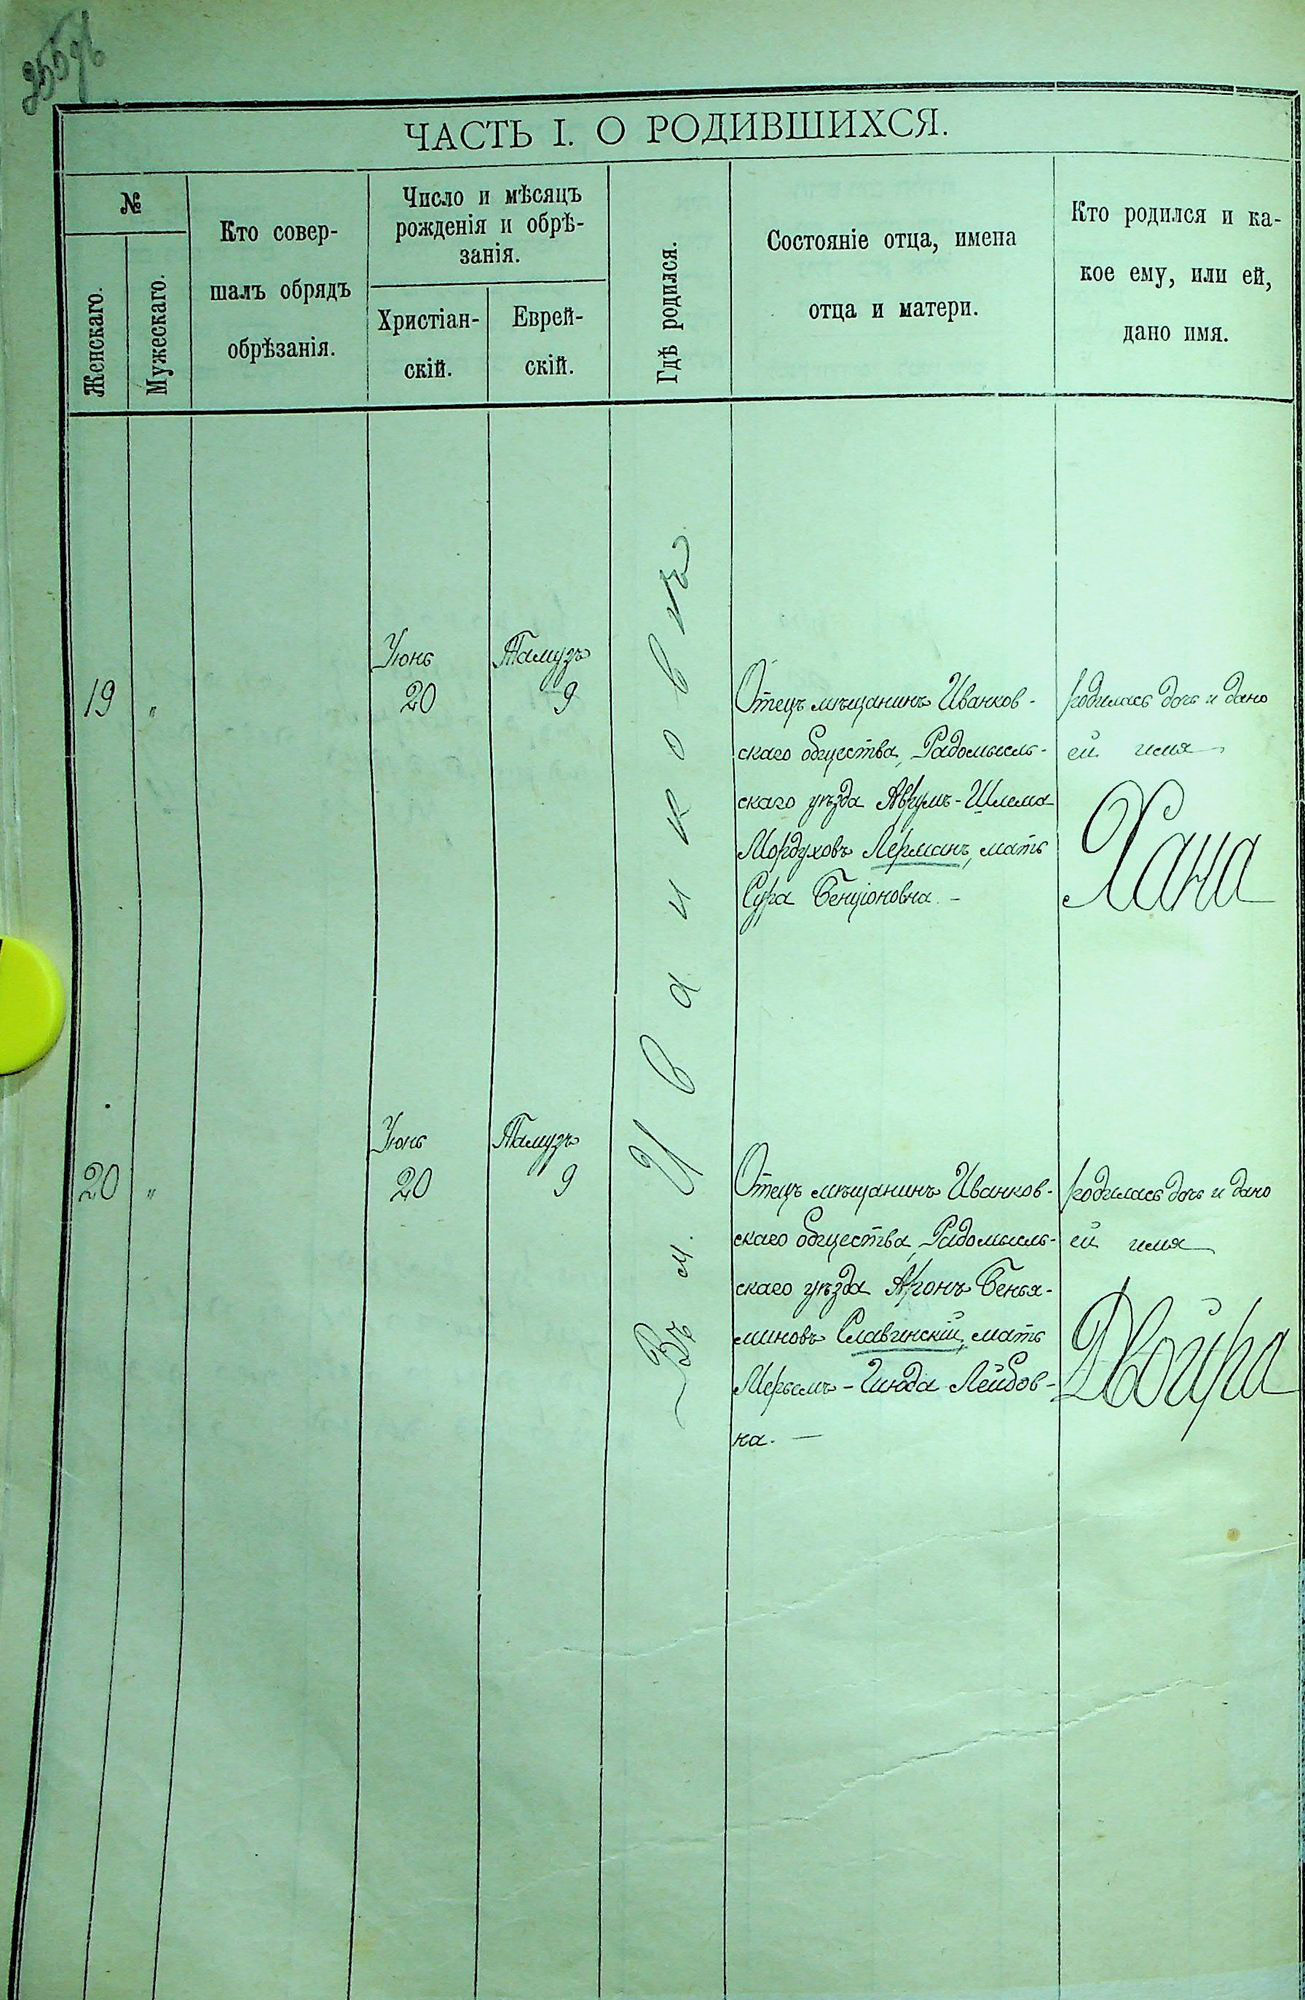 ЧАСТЬ I. О РОДИВШИХСЯ.
№
Женскаго.
Мужескаго.
Кто совер-
шалъ обрядъ
обрѣзанія.
Число и мѣсяцъ
рожденія и обрѣ-
занія.
Христіан-
скій.
Еврей-
скій.
Гдѣ родился.
Состояніе отца, имена
отца и матери.
Кто родился и ка-
кое ему, или ей,
дано имя.
Въ м. Иванковѣ
19 „
Іюнь
20
Тамузъ
9
Отецъ мѣщанинъ Иванков-
скаго общества, Радомысль-
скаго уѣзда Аврумъ-Шлема
Мордуховъ Лерманъ, мать
Сура Бенціоновна. –
родилась дочь и дано
ей имя
Хана
20 „
Іюнь
20
Тамузъ
9
Отецъ мѣщанинъ Иванков-
скаго общества, Радомысль-
скаго уѣзда Аронъ Бенья-
миновъ Славинскій, мать
Мерьемъ-Гинда Лейбов-
на. —
родилась дочь и дано
ей имя
Двойра